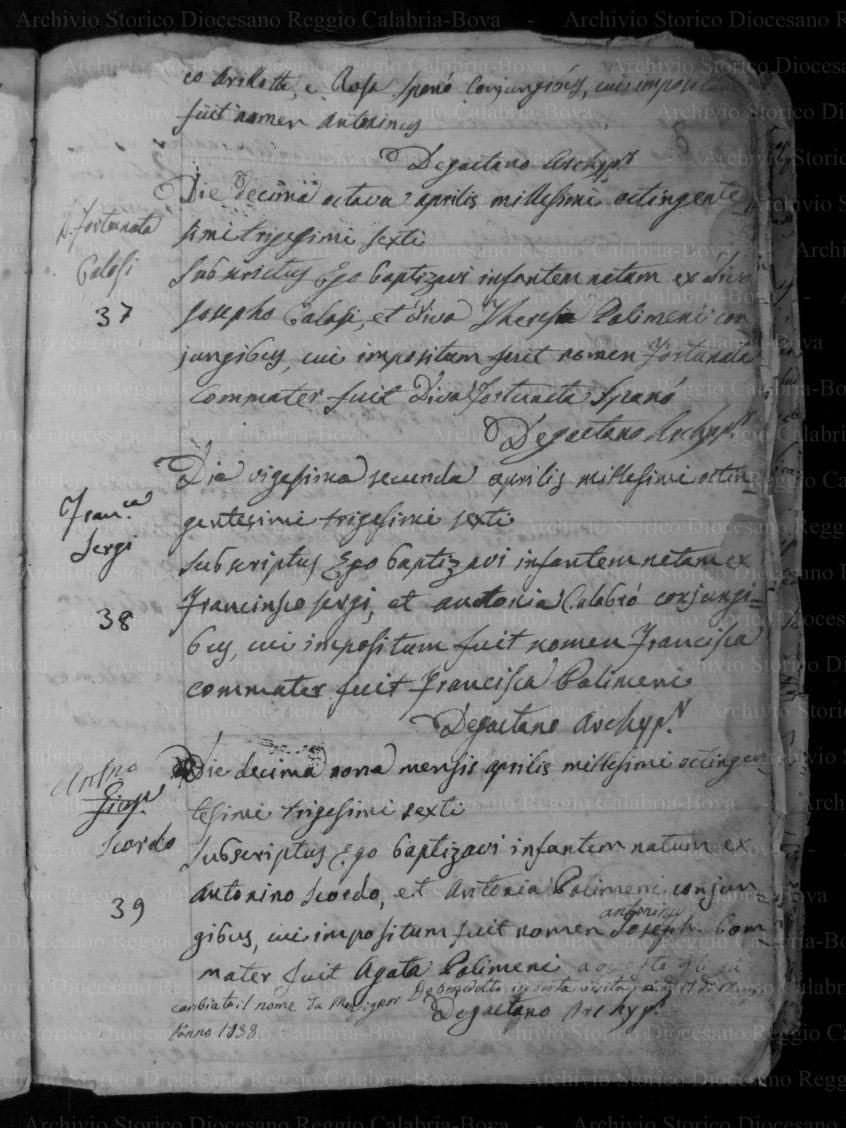 co Arillotta, e Rosa Spanó Conjungibus, cui impositum
fuit nomen Antoninus
Degaetano Archyp.r
Die decima octava aprilis millesimi octingente
simi trigesimi sexti
D. Fortunata
Calasi
37
Subscriptus Ego baptizavi infantem natam ex Divo
Josepho Calasi, et Diva Theresa Polimeni con
jungibus, cui impositum fuit nomen Fortunata
Commater fuit Diva Fortunata Spanó
Degaetano Archyp.r
Die vigesima secunda aprilis millesimi octin-
gentesimi trigesimi sexti
Fran.ca
Sergi
38
Subscriptus Ego baptizavi infantem natam ex
Francisco Sergi, et Antonia Calabró conjungi=
bus, cui impositum fuit nomen Francisca
commater fuit Francisca Polimeni
Degaetano Archyp.r
Die decima nona mensis aprilis millesimi octingen-
tesimi trigesimi sexti
Antno
Gios.e
Scordo
39
Subscriptus Ego baptizavi infantem natum ex
Antonino Scordo, et Antonia Polimeni conjun
gibus, cui impositum fuit nomen Joseph. Com
antoninus
mater fuit Agata Polimeni
cambiato il nome da Monsignor Debenedetto in santa visita
l'anno 1838
Degaetano Archyp.r